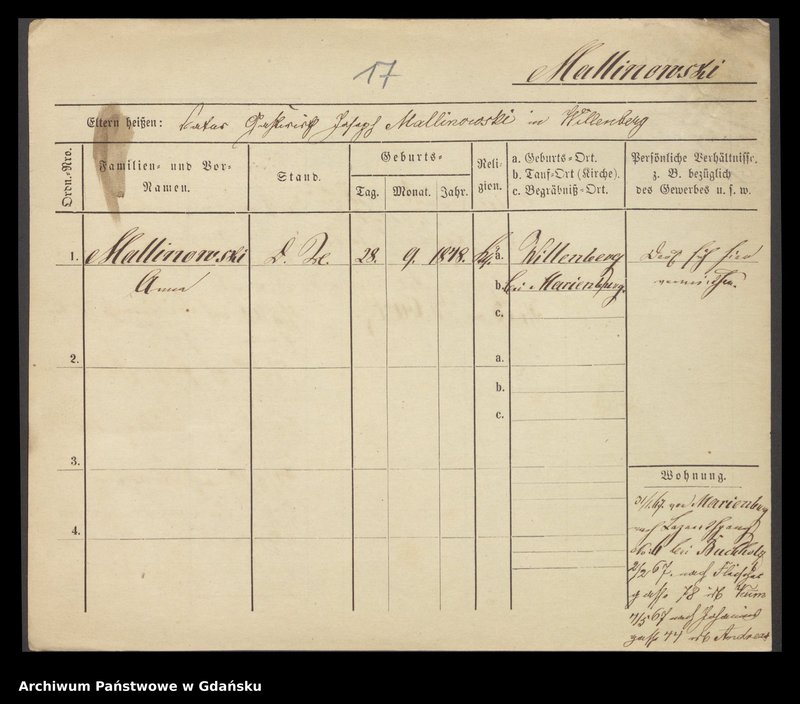 17
Mallinowski
Eltern heißen: Vater Gastwirth Joseph Mallinowski in Willenberg
Ordn.-Nro.
Familien- und Vor-
Namen.
Stand.
Geburts-
Tag. Monat. Jahr.
Reli-
gion.
a. Geburts-Ort.
b. Tauf-Ort (Kirche).
c. Begräbniß-Ort.
Persönliche Verhältnisse,
z. B. bezüglich
des Gewerbes u. s. w.
1. Mallinowski D. 28. 9. 1848. a. Willenberg
Anna b. bei Marienburg.
c.
Darf sich hier
vermiethen.
2. a.
b.
c.
3.
4.
Wohnung.
31/1.67. von Marienburg
nach
bei Buchholz
2/2 67. nach Fleischer
gasse 78
67 nach Johannis
gasse 44 Andreas
Archiwum Państwowe w Gdańsku